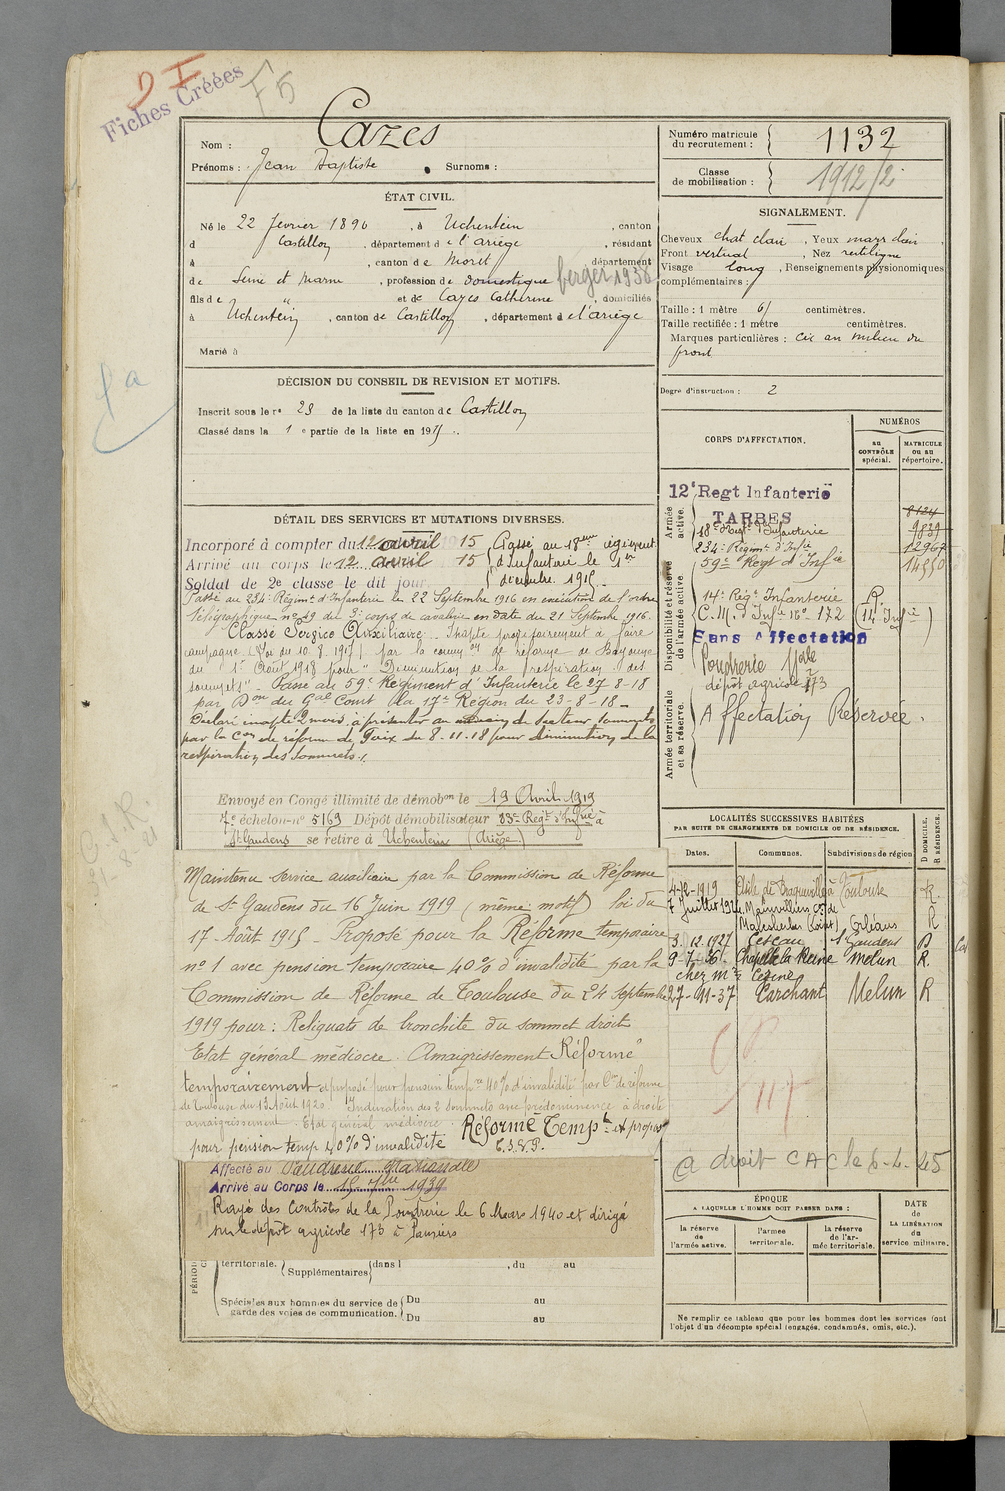 Fiches Créées
F 5
Nom : Cazes
Prénoms : Jean Baptiste Surnoms :
Numéro matricule du recrutement : 1132
Classe de mobilisation : 1912/2
ÉTAT CIVIL.
Né le 22 février 1896, à Uchentein, canton
d Castillon, département de l'ariège, résidant
à , canton de Moret département
de Seine et Marne, profession de domestique berger 1936
fils de " et de Cazes Catherine, domiciliés
à Uchentein, canton de Castillon, département d el'ariège
Marié à
SIGNALEMENT.
Cheveux chat clair, Yeux marr clair,
Front vertical, Nez rectiligne
Visage long, Renseignements physionomiques
complémentaires :
Taille : 1 mètre 61 centimètres.
Taille rectifiée : 1 mètre centimètres.
Marques particulières : cic au milieu du
front
Degré d'instruction : 2
DÉCISION DU CONSEIL DE REVISION ET MOTIFS.
Inscrit sous le n° 23 de la liste du canton de Castillon
Classé dans la 1 e partie de la liste en 1915.
CORPS D'AFFECTATION.
NUMÉROS
au CONTRÔLE spécial.
MATRICULE ou au répertoire.
Armée active.
12e Regt Infanterie
TARBES
18e Regt d'Infanterie 9839
234e Régimt d'Infie 12967
59e Regt d'Infie 14550
Disponibilité et réserve de l'armée active.
14e Regt Infanterie R
C.M. d'Infie N° 172 (14e Infie)
Sans Affectation
Poudrerie Nale
dépôt agricole 173
Armée territoriale et sa réserve.
Affectation Réservée.
DÉTAIL DES SERVICES ET MUTATIONS DIVERSES.
Incorporé à compter du 12 avril 1915 Passé au 18eme régiment
Arrivé au corps le 12 avril 15 d'infanterie le 1er
Soldat de 2e classe le dit jour. décembre 1915.
Passé au 234e Régimt d'Infanterie le 22 Septembre 1916 en exécution de l'ordre
télégraphique n° 49 du 3e corps de cavalerie en date du 21 Septembre 1916.
Classé Service Auxiliaire. Inapte provisoirement à faire
campagne (Loi du 10.8.1917) par la common de réforme de Bayonne
du 1er Août 1918 pour "Diminution de la respiration des
sommets" - Passé au 59e Régiment d'Infanterie le 27-8-18
par Don du Gal Comt la 17e Région du 23-8-18 -
Déclaré inapte 2 mois. à présenter au médecin de secteur sommets
par la Con de réforme de Foix du 8.11.18 pour diminution de la
respiration des sommets.
Envoyé en Congé illimité de démobon le 19 Avril 1919
7e échelon-n° 5169 Dépôt démobilisateur 83e Regt d'Infie à
St Gaudens se retire à Uchentein (Ariège.)
Maintenu service auxiliaire par la Commission de Réforme
de St Gaudens du 16 Juin 1919 (même motif) loi du
17 Août 1915 - Proposé pour la Réforme temporaire
n° 1 avec pension temporaire 40% d'invalidité par la
Commission de Réforme de Toulouse du 24 Septembre
1919 pour : Reliquats de bronchite du sommet droit
Etat général médiocre. Amaigrissement Réformé
temporairement et proposé pour pension tempre 40% d'invalidité par Con de réforme
de Toulouse du 13 Août 1920. Induration des 2 sommets avec prédominence à droite
amaigrissement. Etat général médiocre. Réformé Tempt et proposé
pour pension temp 40% d'invalidité
Affecté au Poudrerie Nationale
Arrivé au Corps le 15 7bre 1939
Rayé des Contrôles de la Poudrerie le 6 Mars 1940 et dirigé
sur le dépôt agricole 173 à Pamiers
territoriale. Supplémentaires dans l , du au
Spéciales aux hommes du service de garde des voies de communication. Du au
Du au
LOCALITÉS SUCCESSIVES HABITÉES
PAR SUITE DE CHANGEMENTS DE DOMICILE OU DE RÉSIDENCE.
Dates. Communes. Subdivisions de région D DOMICILE. R RÉSIDENCE.
4-12-1919 Asile de Braqueville à Toulouse R.
7 Juillet 192 Mainvilliers con de
Malesherbes (Loiret) Orléans R
3.12.1927 Cescau St Gaudens D
9-7-36 Chapelle la Reine Melun R.
chez Mr
27-11-37 Larchant Melun R
à droit CAC le 6-4-45
ÉPOQUE
A LAQUELLE L'HOMME DOIT PASSER DANS :
la réserve de l'armée active.
l'armée territoriale.
la réserve de l'armée territoriale.
DATE de LA LIBÉRATION du service militaire.
Ne remplir ce tableau que pour les hommes dont les services font
l'objet d'un décompte spécial (engagés, condamnés, omis, etc.).